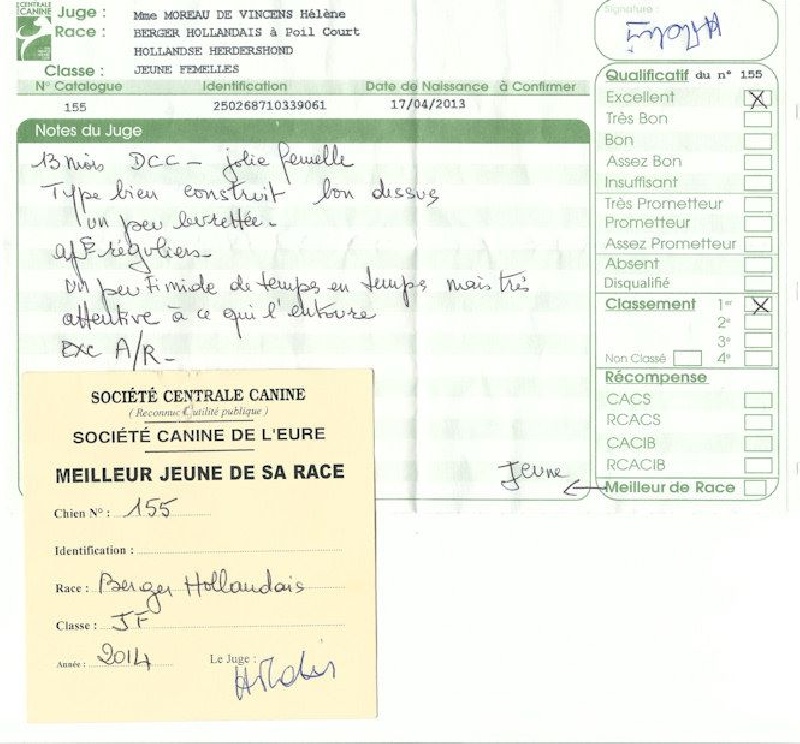 CENTRALE
CANINE
Juge : Mme MOREAU DE VINCENS Hélène
Race : BERGER HOLLANDAIS à Poil Court
HOLLANDSE HERDERSHOND
Classe : JEUNE FEMELLES
N° Catalogue Identification Date de Naissance à Confirmer
155 250268710339061 17/04/2013
Notes du Juge
13 mois DCC - jolie femelle
Type bien construit bon dessus
un peu levrettée.
réguliers.
un peu timide de temps en temps mais très
attentive à ce qui l'entoure
exc A/R -
Jeune
Signature :
Qualificatif du n° 155
Excellent X
Très Bon
Bon
Assez Bon
Insuffisant
Très Prometteur
Prometteur
Assez Prometteur
Absent
Disqualifié
Classement 1er X
2e
3e
Non Classé 4e
Récompense
CACS
RCACS
CACIB
RCACIB
Meilleur de Race
SOCIÉTÉ CENTRALE CANINE
( Reconnue d'utilité publique )
SOCIÉTÉ CANINE DE L'EURE
MEILLEUR JEUNE DE SA RACE
Chien N° : 155
Identification :
Race : Berger Hollandais
Classe : JF
Année : 2014 Le Juge :